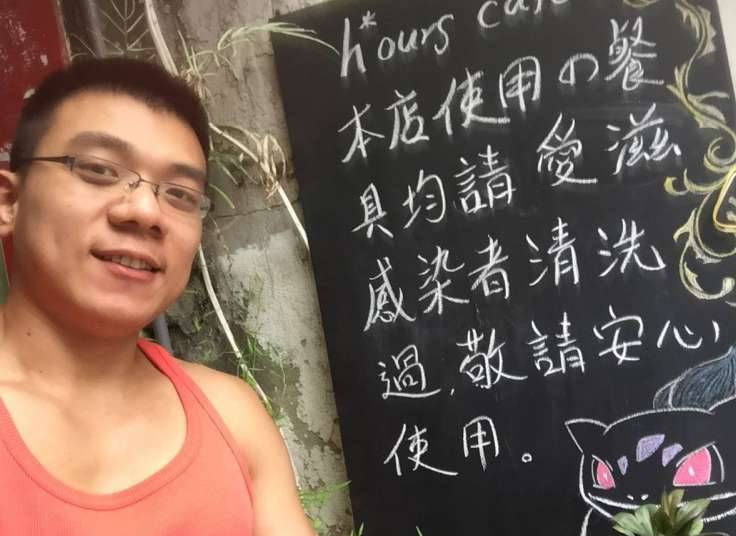 h*ours café
本店使用の餐
具均請愛滋
感染者清洗
過,敬請安心
使用。